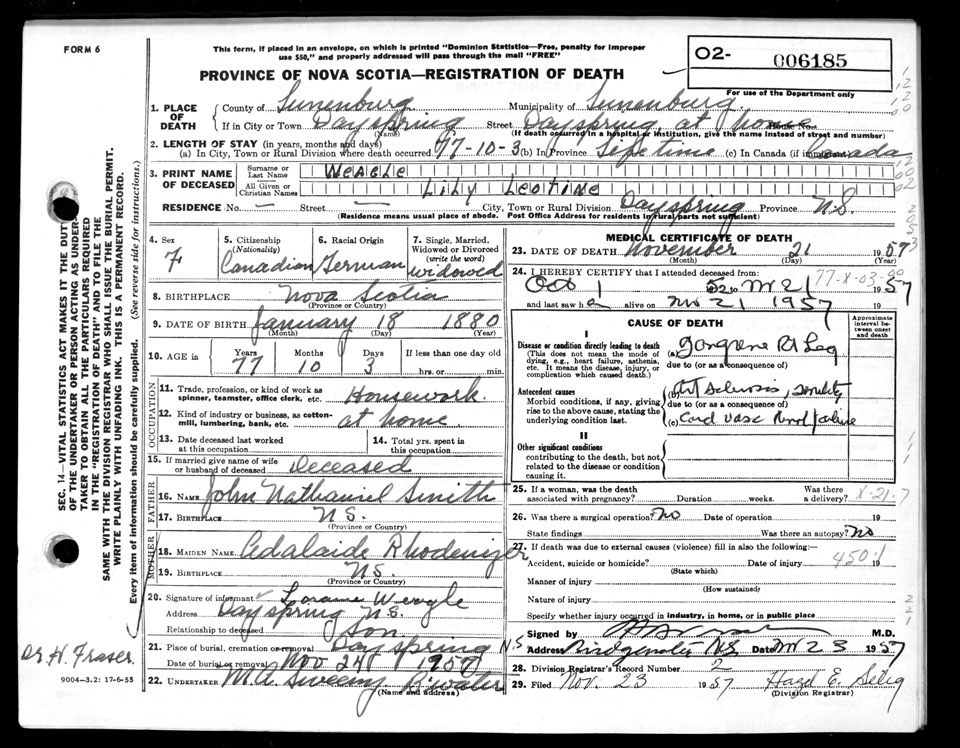 FORM 6
This form, if placed in an envelope, on which is printed "Dominion Statistics—Free, penalty for improper
use $50," and properly addressed will pass through the mail "FREE"
O2- 006185
For use of the Department only
PROVINCE OF NOVA SCOTIA—REGISTRATION OF DEATH
1. PLACE OF DEATH
County of Lunenburg Municipality of Lunenburg
If in City or Town Dayspring Street Dayspring at home House No.
(Name) (If death occurred in a hospital or institution, give the name instead of street and number)
2. LENGTH OF STAY (in years, months and days)
(a) In City, Town or Rural Division where death occurred 77-10-3 (b) In Lifetime (c) In Canada (if immigrant) Canada
3. PRINT NAME OF DECEASED
Surname or Last Name Weagle
All Given or Christian Names Lily Leotine
RESIDENCE No. — Street — City, Town or Rural Division Dayspring Province N.S.
(Residence means usual place of abode. Post Office Address for residents in rural parts not sufficient)
4. Sex F
5. Citizenship (Nationality) Canadian
6. Racial Origin German
7. Single, Married, Widowed or Divorced (write the word) widowed
8. BIRTHPLACE Nova Scotia
(Province or Country)
9. DATE OF BIRTH January 18 1880
(Month) (Day) (Year)
10. AGE in Years 77 Months 10 Days 3 If less than one day old hrs. or min.
OCCUPATION
11. Trade, profession, or kind of work as spinner, teamster, office clerk, etc. Housework.
12. Kind of industry or business, as cotton-mill, lumbering, bank, etc. at home.
13. Date deceased last worked at this occupation
14. Total yrs. spent in this occupation
15. If married give name of wife or husband of deceased Deceased
FATHER
16. NAME John Nathaniel Smith
17. BIRTHPLACE N.S.
(Province or Country)
MOTHER
18. MAIDEN NAME Adalaide Rhodenizer
19. BIRTHPLACE N.S.
(Province or Country)
20. Signature of informant Loraine Weagle
Address Dayspring N.S.
Relationship to deceased Son
21. Place of burial, cremation or removal Dayspring N.S
Date of burial or removal Nov 24 1957
22. UNDERTAKER M.A. Sweeny B'water
(Name and Address)
MEDICAL CERTIFICATE OF DEATH
23. DATE OF DEATH November 21 1957
(Month) (Day) (Year)
24. I HEREBY CERTIFY that I attended deceased from:
Oct 1 52 to Nov 21 1957
77-X-03-00
and last saw h e alive on Nov 21 1957 19
CAUSE OF DEATH
Approximate interval between onset and death
I
Disease or condition directly leading to death
(This does not mean the mode of dying, e.g., heart failure, asthenia, etc. It means the disease, injury, or complication which caused death.)
(a) Gangrene Rt Leg
due to (or as a consequence of)
Antecedent causes
Morbid conditions, if any, giving rise to the above cause, stating the underlying condition last.
(b) Art Sclerosis, Senility
due to (or as a consequence of)
(c) Card Vasc Renal failure
II
Other significant conditions
contributing to the death, but not related to the disease or condition causing it.
25. If a woman, was the death associated with pregnancy? Duration weeks. Was there a delivery?
X-21-7
26. Was there a surgical operation? No Date of operation 19
State findings Was there an autopsy? No
27. If death was due to external causes (violence) fill in also the following:—
Accident, suicide or homicide? Date of injury 19
(State which)
450.1
Manner of injury
(How sustained)
Nature of injury
Specify whether injury occurred in industry, in home, or in public place
Signed by M.D.
Address Bridgewater NS Date Nov 23 1957
28. Division Registrar's Record Number 2
29. Filed Nov. 23 1957 Hazel E. Selig
(Division Registrar)
SEC. 14—VITAL STATISTICS ACT MAKES IT THE DUTY
OF THE UNDERTAKER OR PERSON ACTING AS UNDER-
TAKER TO OBTAIN ALL THE PARTICULARS REQUIRED
IN THE "REGISTRATION OF DEATH" AND TO FILE THE
SAME WITH THE DIVISION REGISTRAR WHO SHALL ISSUE THE BURIAL PERMIT.
WRITE PLAINLY WITH UNFADING INK. THIS IS A PERMANENT RECORD.
Every item of information should be carefully supplied. (See reverse side for instructions.)
Dr. H. Fraser.
9004—3.2: 17-6-55